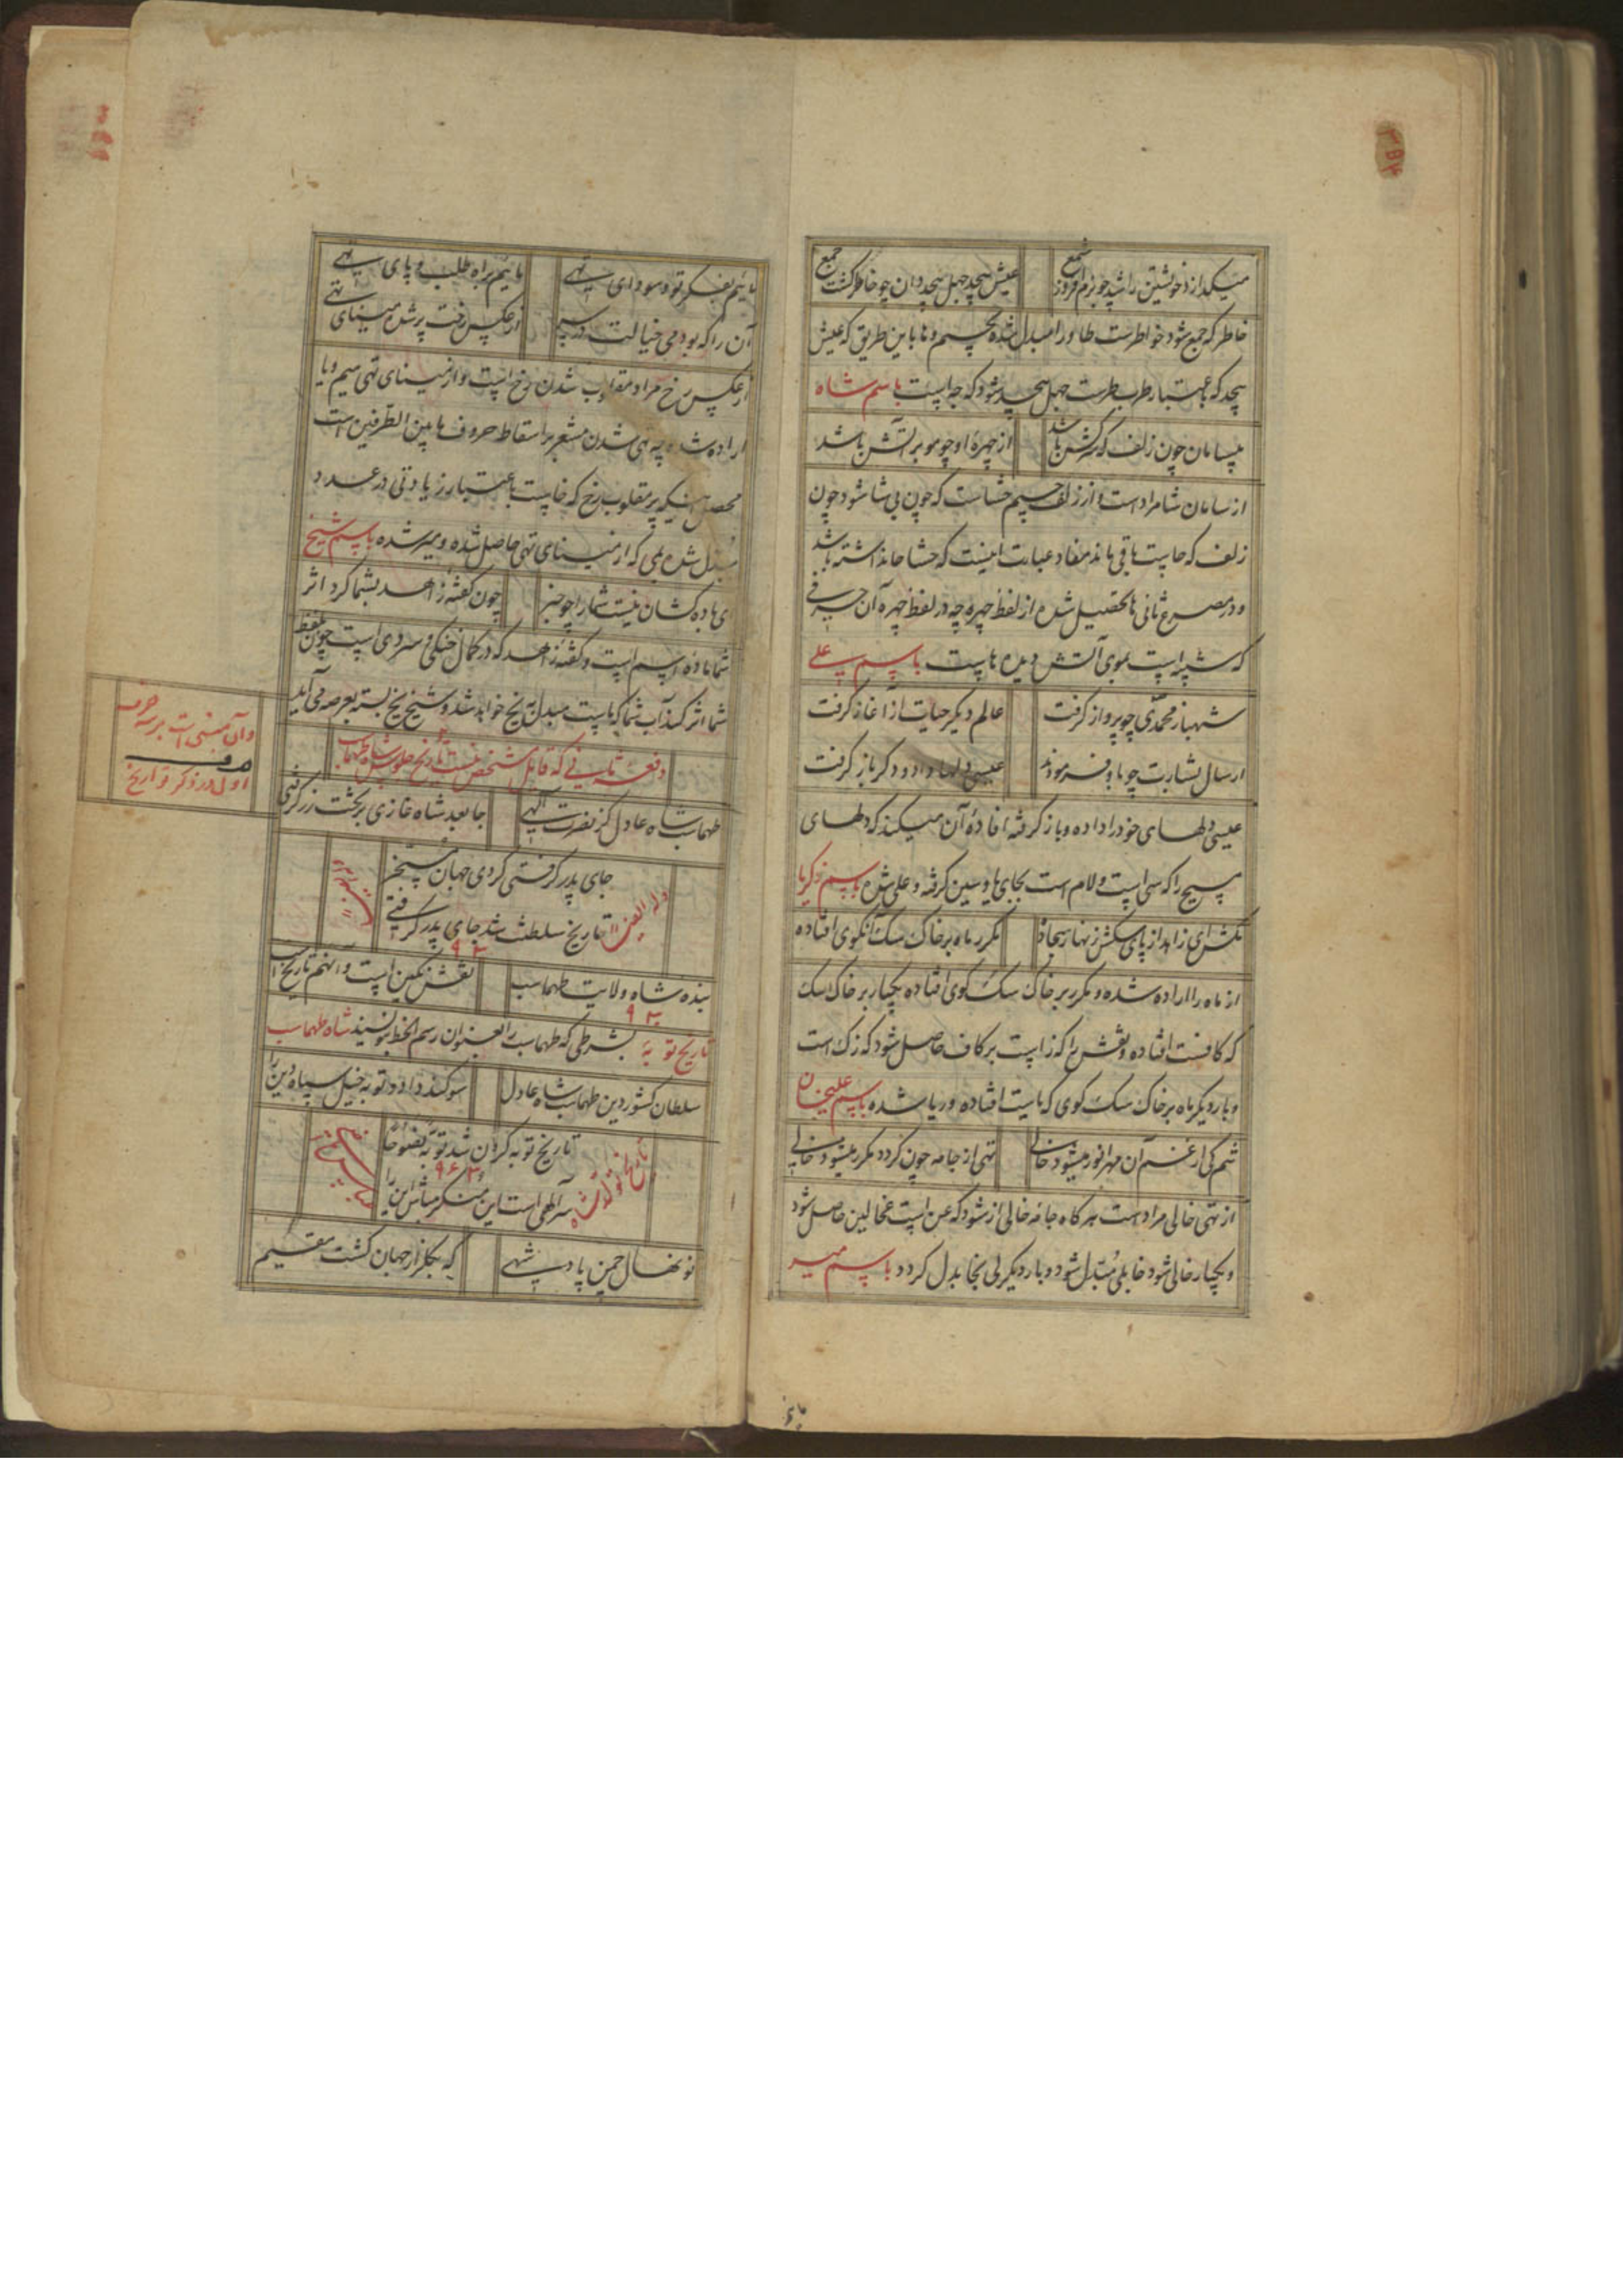 میگدازد خویشتن را شد چو بزم افروز شمع
عیش بیحد جهل بیحد دان چو خاطر گشت جمع
خاطر که جمع شود خواطرست طا و را مبدل شده بجیم و ها باین طریق که عیش
بیحد که باعتبار طرب طرست جهل بیحد شود که جه است باسم شاه
بیسامان چون زلف که سرکش باشد
از چهرهٔ او چو مو بر آتش باشد
از سامان شا مرادست و از زلف جیم خشاست که چون بی شا شود چون
زلف که جا پیت باقی ماند مفاد عبارت اینست که حشا جا نداشته باشد
و در مصرع ثانی ها تحصیل شده از لفظ چهره چه در لفظ چهره آن حرفی
که شبیه است بموی آتش دیده هاست باسم علی
شهباز محمدی چو پرواز گرفت
عالم دیگر حیات از آغاز گرفت
ارسال بشارت چو باو فرمودند
عیسی دلها داد و دگر باز گرفت
عیسی دلهای خود را داده و باز گرفته افادهٔ آن میکند که دلهای
مسیح را که سی است و لام است بجای ها و سین گرفته و علی شده باسم زکریا
نکشد ای زاهد از پای سگش زنهار سجاده
مکرر ماه بر خاک سگ آنکوی افتاده
از ماه را اراده شده و مکرر بر خاک سگ کوی افتاده یکبار بر خاک سگ
که کافست افتاده و نقش را که زاست بر کاف حاصل شود که زک است
و بار دیگر ماه بر خاک سگ کوی که یاست افتاده و ریا شده باسم علیخان
شم کی از غم آن مهر انور میشود خالی
تهی از جامه چون گردد مکرر میشود خالی
از تهی خالی مرادست هرگاه جامه خالی از شود که عن است عخالین حاصل شود
و یکبار خالی شود خا بلی مبدل شود و بار دیگر لی بخا بدل گردد باسم میر
مائیم بفکر تو و سودای تهی
مائیم براه طلب و پای تهی
آن را که بود می خیالت در سر
از عکس رخت پر شده مینای تهی
از عکس رخ مراد مقلوب شدن رخ است و از مینای تهی میم و یا
اراده شده چه تهی شدن مشعر بر اسقاط حروف مابین الطرفین است
محصل اینکه پر مقلوب رخ که خاست باعتبار زیادتی در عدد
مبدل شده بمی که از مینای تهی حاصل شده و میر شده باسم شیخ
ای باده کشان نیست شما را چو خبر
چون گفتهٔ زاهد بشما کرد اثر
شما مادهٔ اسم است و گفتهٔ زاهد که در کمال خنکی و سردی است چون بلفظ
شما اثر کند آب شما که ماست مبدل به یخ خواهد شد و شیخ یخ بسته بعرصه می آید
دفعه ثانی که قابل تشخص نیست تاریخ جلوس شاه طهماسب
وآن مبنی است بر سه حرف
حرف
اول در ذکر تواریخ
طهماسب شاه عادل کز نصرت الهی
جا بعد شاه غازی بر تخت زر گرفتی
جای پدر گرفتی کردی جهان مسخر
تاریخ سلطنت شد جای پدر گرفتی
۹۳۰
بنده شاه ولایت طهماسب
نقش نگین است و آنهم تاریخ است
۹۳۰
تاریخ توبه بشرطی که طهماسب را بعنوان رسم الخط بنویسند شاه طهماسب
سلطان کشور دین طهماسب شاه عادل
سوگند داد و توبه خیل سپاه دین را
تاریخ توبه کردن شد توبة نصوحا
۹۶۳
سر الهی است این منکر مباش این را
نونهال چمن پادشهی
که بگلزار جهان گشت مقیم